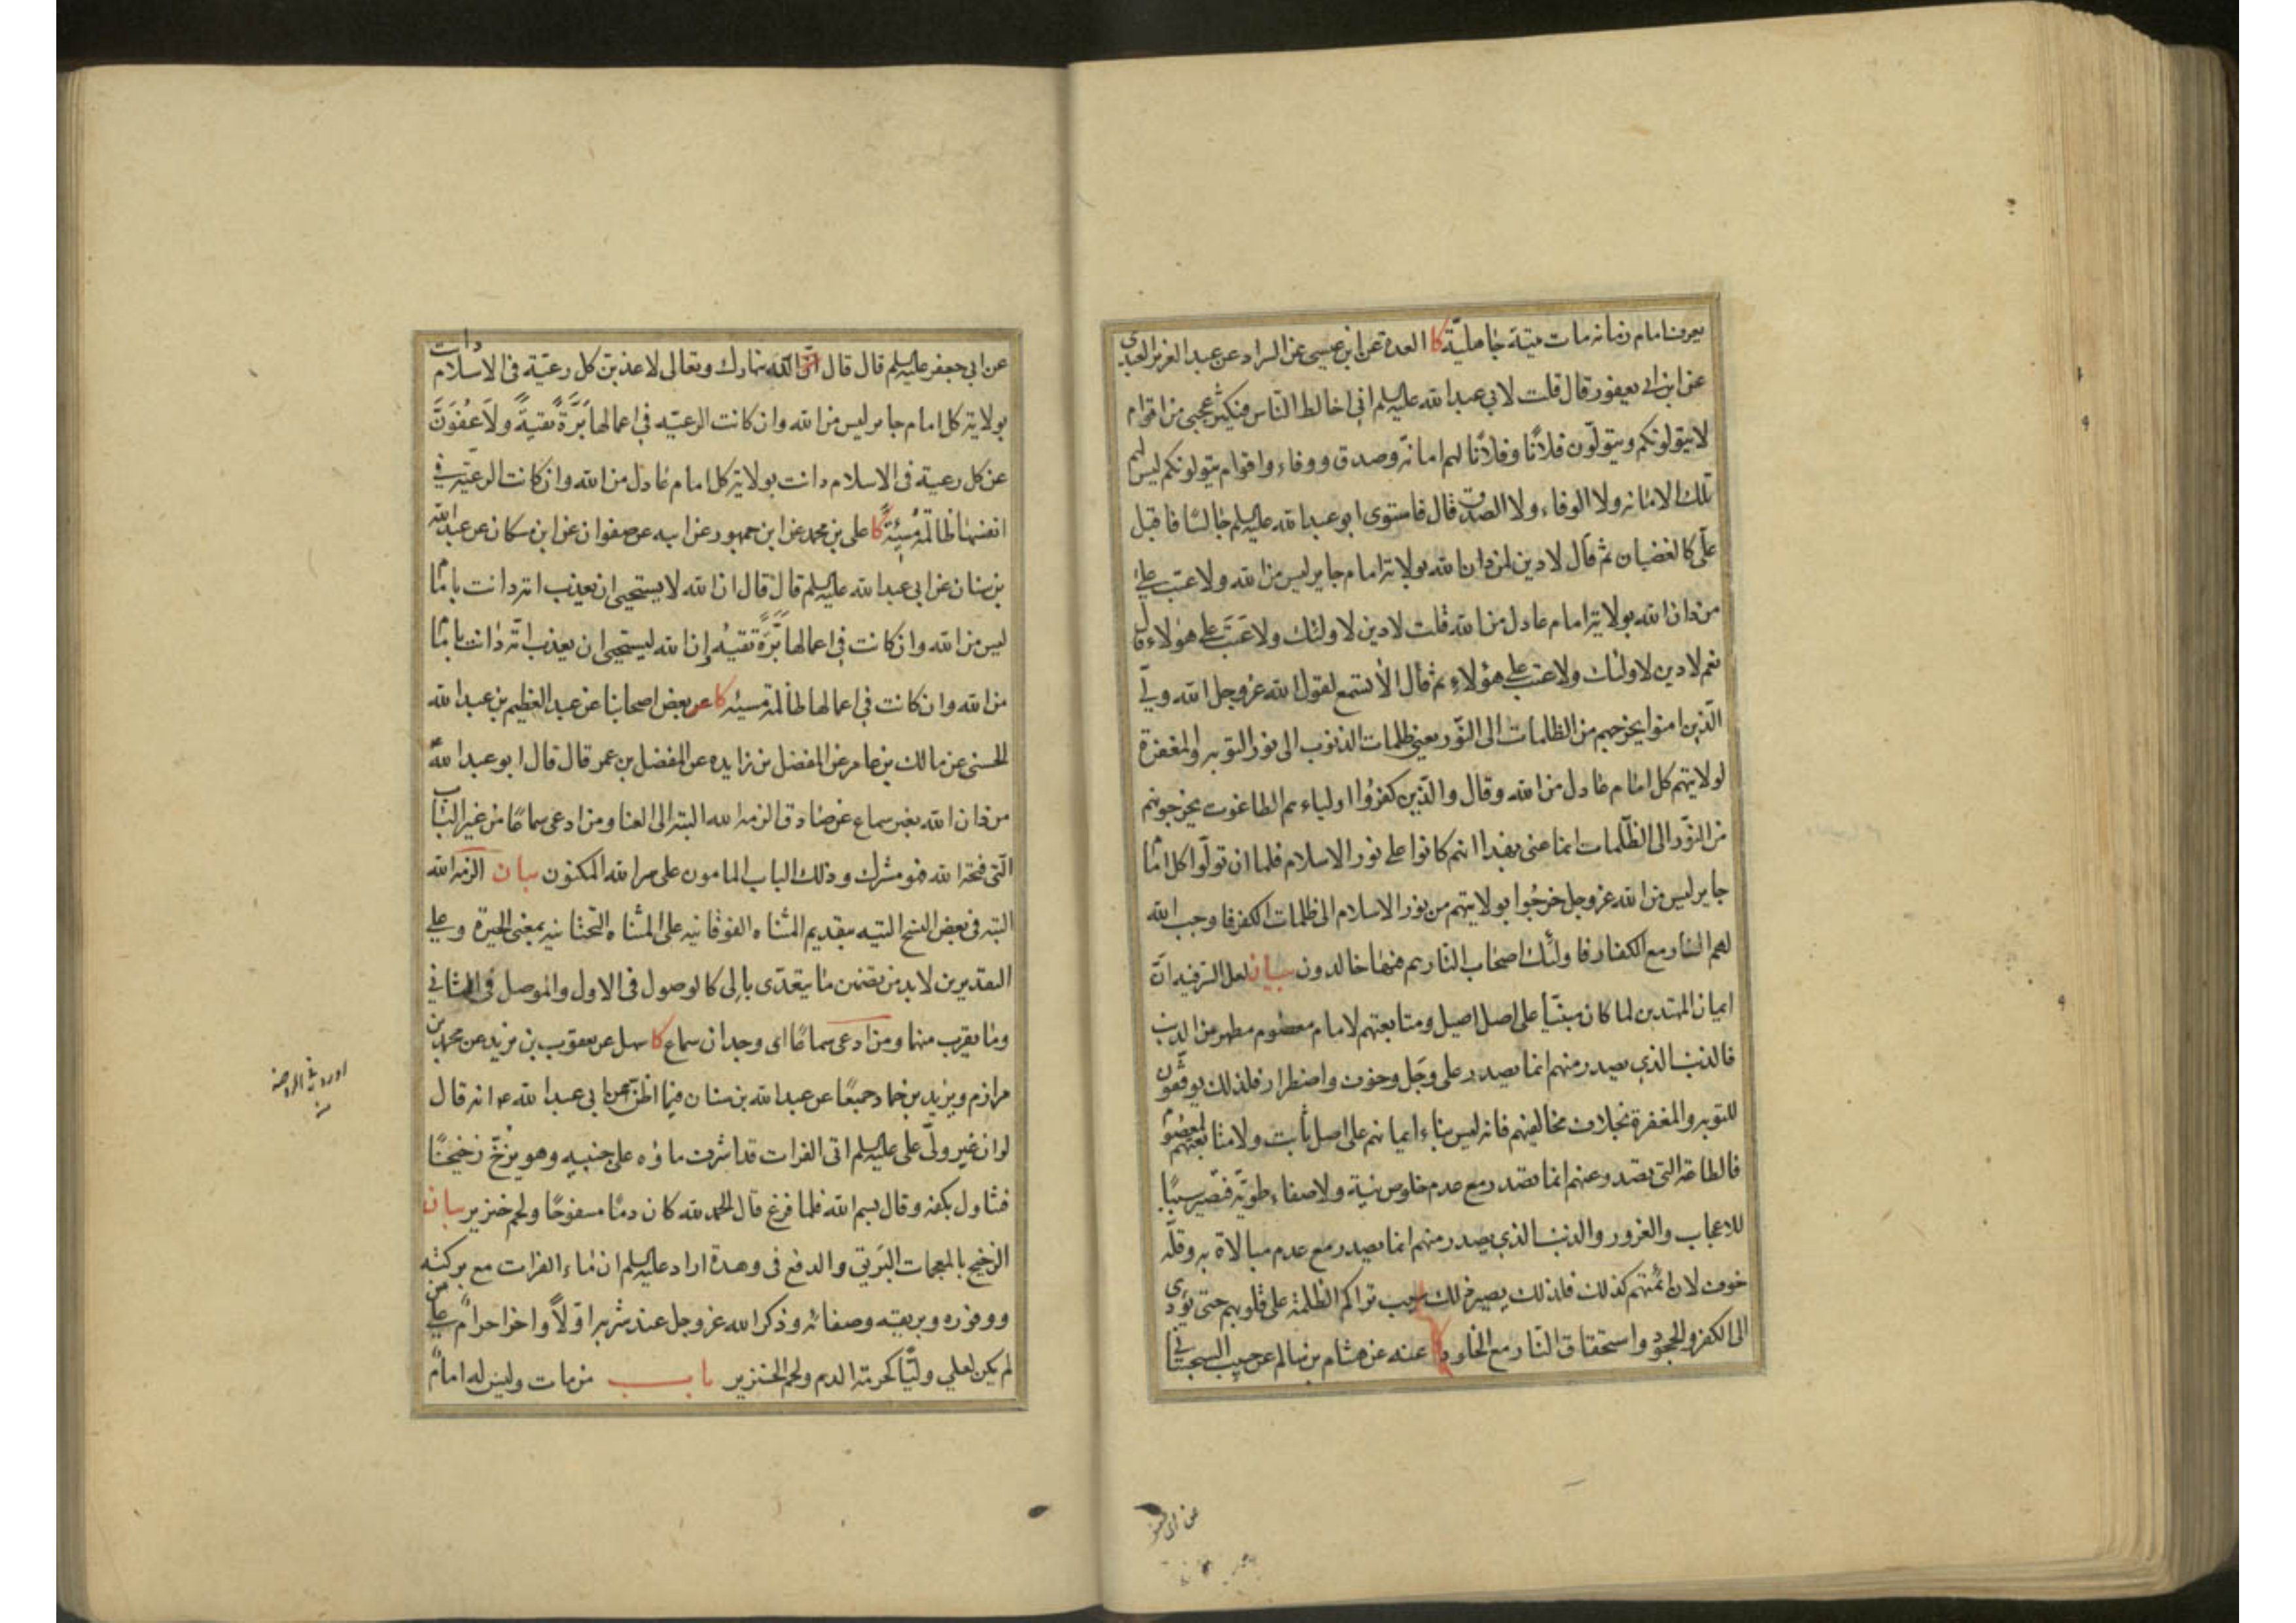 يعرف امام زمانه مات ميتة جاهليّة كا العدة عن ابن عيسى عن السراد عن عبد العزيز العبدى
عن ابن ابى يعفور قال قلت لابى عبد الله عليه السلم انى اخالط النّاس فيكثر عجبى من اقوام
لا يتولونكم ويتولّون فلانًا وفلانًا لهم امانة وصدق ووفاء واقوام يتولونكم ليس لهم
تلك الامانه ولا الوفاء ولا الصدق قال فاستوى ابو عبد الله عليه السلم جالسًا فاقبل
علّى كالغضبان ثم قال لا دين لمن دان الله بولاية امام جاير ليس من الله ولا عتب على
من دان الله بولاية امام عادل من الله قلت لا دين لاولئك ولا عَتَبَ على هؤلاء قال
نعم لا دين لاولئك ولا عتب على هؤلاء ثم قال الا تسمع لقول الله عز وجل الله ولّى
الّذين امنوا يخرجهم من الظلمات الى النّور يعنى ظلمات الذنوب الى نور التوبه والمغفرة
لولايتهم كل امام عادل من الله وقال والّذين كفروُا اولياءهم الطاغوت يخرجونهم
من النّور الى الظّلمات انما عنى بهذا انهم كانوا على نور الاسلام فلما ان تولّوا كل امام
جاير ليس من الله عز وجل خرجُوا بولايتهم من نور الاسلام الى ظلمات الكفر فاوجب الله
لهم النار مع الكفار فاولئك اصحاب النّار هم فيها خالدون بيان لعل السرفيه انّ
ايمان المهتدين لما كان مبنيّا على اصل اصيل ومتابعتهم لامام معصوم مطهر عن الذنب
فالذنب الذي يصدر منهم انما يصدر على وَجَل وخوف واضطرار فلذلك يوفقون
للتوبه والمغفرة بخلاف مخالفيهم فانه ليس بناء ايمانهم على اصل ثابت ولا متابعتهم لمعصوم
فالطاعة التى تصدر عنهم انما تصدر مع عدم خلوص نيّة ولا صفاء طويّة فتصير سببًا
للاعجاب والغرور والذنب الذي يصدر منهم انما يصدر مع عدم مبالاة به وقلّة
خوف لان ائمّتهم كذلك فلذلك يصير ذلك سبب تراكم الظلمة على قلوبهم حتى يؤدى
الى الكفر والجحود واستحقاق النّار مع الخلود كا عنه عن هشام بن سالم عن حبيب السجستانى
عن ابى جعفر
عن ابى جعفر عليه السلم قال قال الله تبارك وتعالى لاعذبن كل رعيّة فى الاسلام دانت
بولاية كل امام جاير ليس من الله وان كانت الرعيّه فى اعمالها بَرَّةً تقيةً ولاَعفُوَنَّ
عن كل رعية فى الاسلام دانت بولاية كل امام عادل من الله وان كانت الرعيّة فى
انفسها ظالمة مُسيئة كا على بن محمد عن ابن جمهور عن ابيه عن صفوان عن ابن مسكان عن عبد الله
بن سنان عن ابى عبد الله عليه السلم قال قال ان الله لا يستحيى ان يعذب امة دانت بامام
ليس من الله وان كانت فى اعمالها بَرَّةً تقيةً وإن الله ليستحيى ان يعذب امّة دانت بامام
من الله وان كانت فى اعمالها ظالمة مسيئه كا عن بعض اصحابنا عن عبد العظيم بن عبد الله
الحسنى عن مالك بن عامر عن المفضل بن زايده عن المفضل بن عمر قال قال ابو عبد الله
من دان الله بغير سماع عن صادق الزمه الله البته الى العنا ومن ادعى سماعًا من غير الباب
الّتى فتحه الله فهو مشرك وذلك الباب المامون على سر الله المكنون بيان الزمه الله
البته فى بعض النسخ التيه بتقديم المثناه الفوقانيه على المثناه التحتانيه بمعنى الحيرة وعلى
التقديرين لابد من تضمن ما يتعدّى بالى كالوصول فى الاول والموصل فى الثانى
وما يقرب منهما ومن ادعى سماعًا اى وجدان سماع كا سهل عن يعقوب بن يزيد عن محمد بن
مرازم ويزيد بن حماد جميعًا عن عبد الله بن سنان فيما اظنّ عن ابى عبد الله ع انه قال
لو ان غير ولّى على عليه السلم اتى الفرات قد اشرف ماؤه على جنبيه وهو يزُخّ زخيخًا
فتناول بكفه وقال بسم الله فلما فرغ قال الحمد لله كان دمًا مسفوحًا ولحم خنزير بيان
الزخيخ بالمعجمات البَريق والدفع فى وهدة اراد عليه السلم ان ماء الفرات مع بركته
ووفوره وبريقه وصفائه وذكر الله عز وجل عند شربه اوّلاً واخرا حرام على من
لم يكن لعلي وليًّا كحرمة الدم ولحم الخنزير باب من مات وليس له امام
اورده فى الروضه
منه